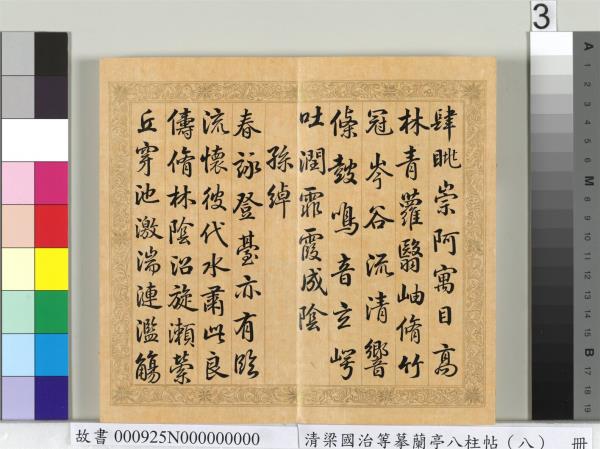 3
肆眺崇阿寓目高
林青蘿翳岫脩竹
冠岑谷流清響
條鼓鳴音玄崿
吐潤霏霞成陰
孫綽
春詠登臺亦有臨
流懷彼伐木肅此良
儔脩林陰沼旋瀨縈
丘穿池激湍漣濫觴
A 1 2 3 4 5 6 M 8 9 10 11 12 13 14 15 B 17 18 19
故書 000925N000000000
清梁國治等摹蘭亭八柱帖（八） 冊